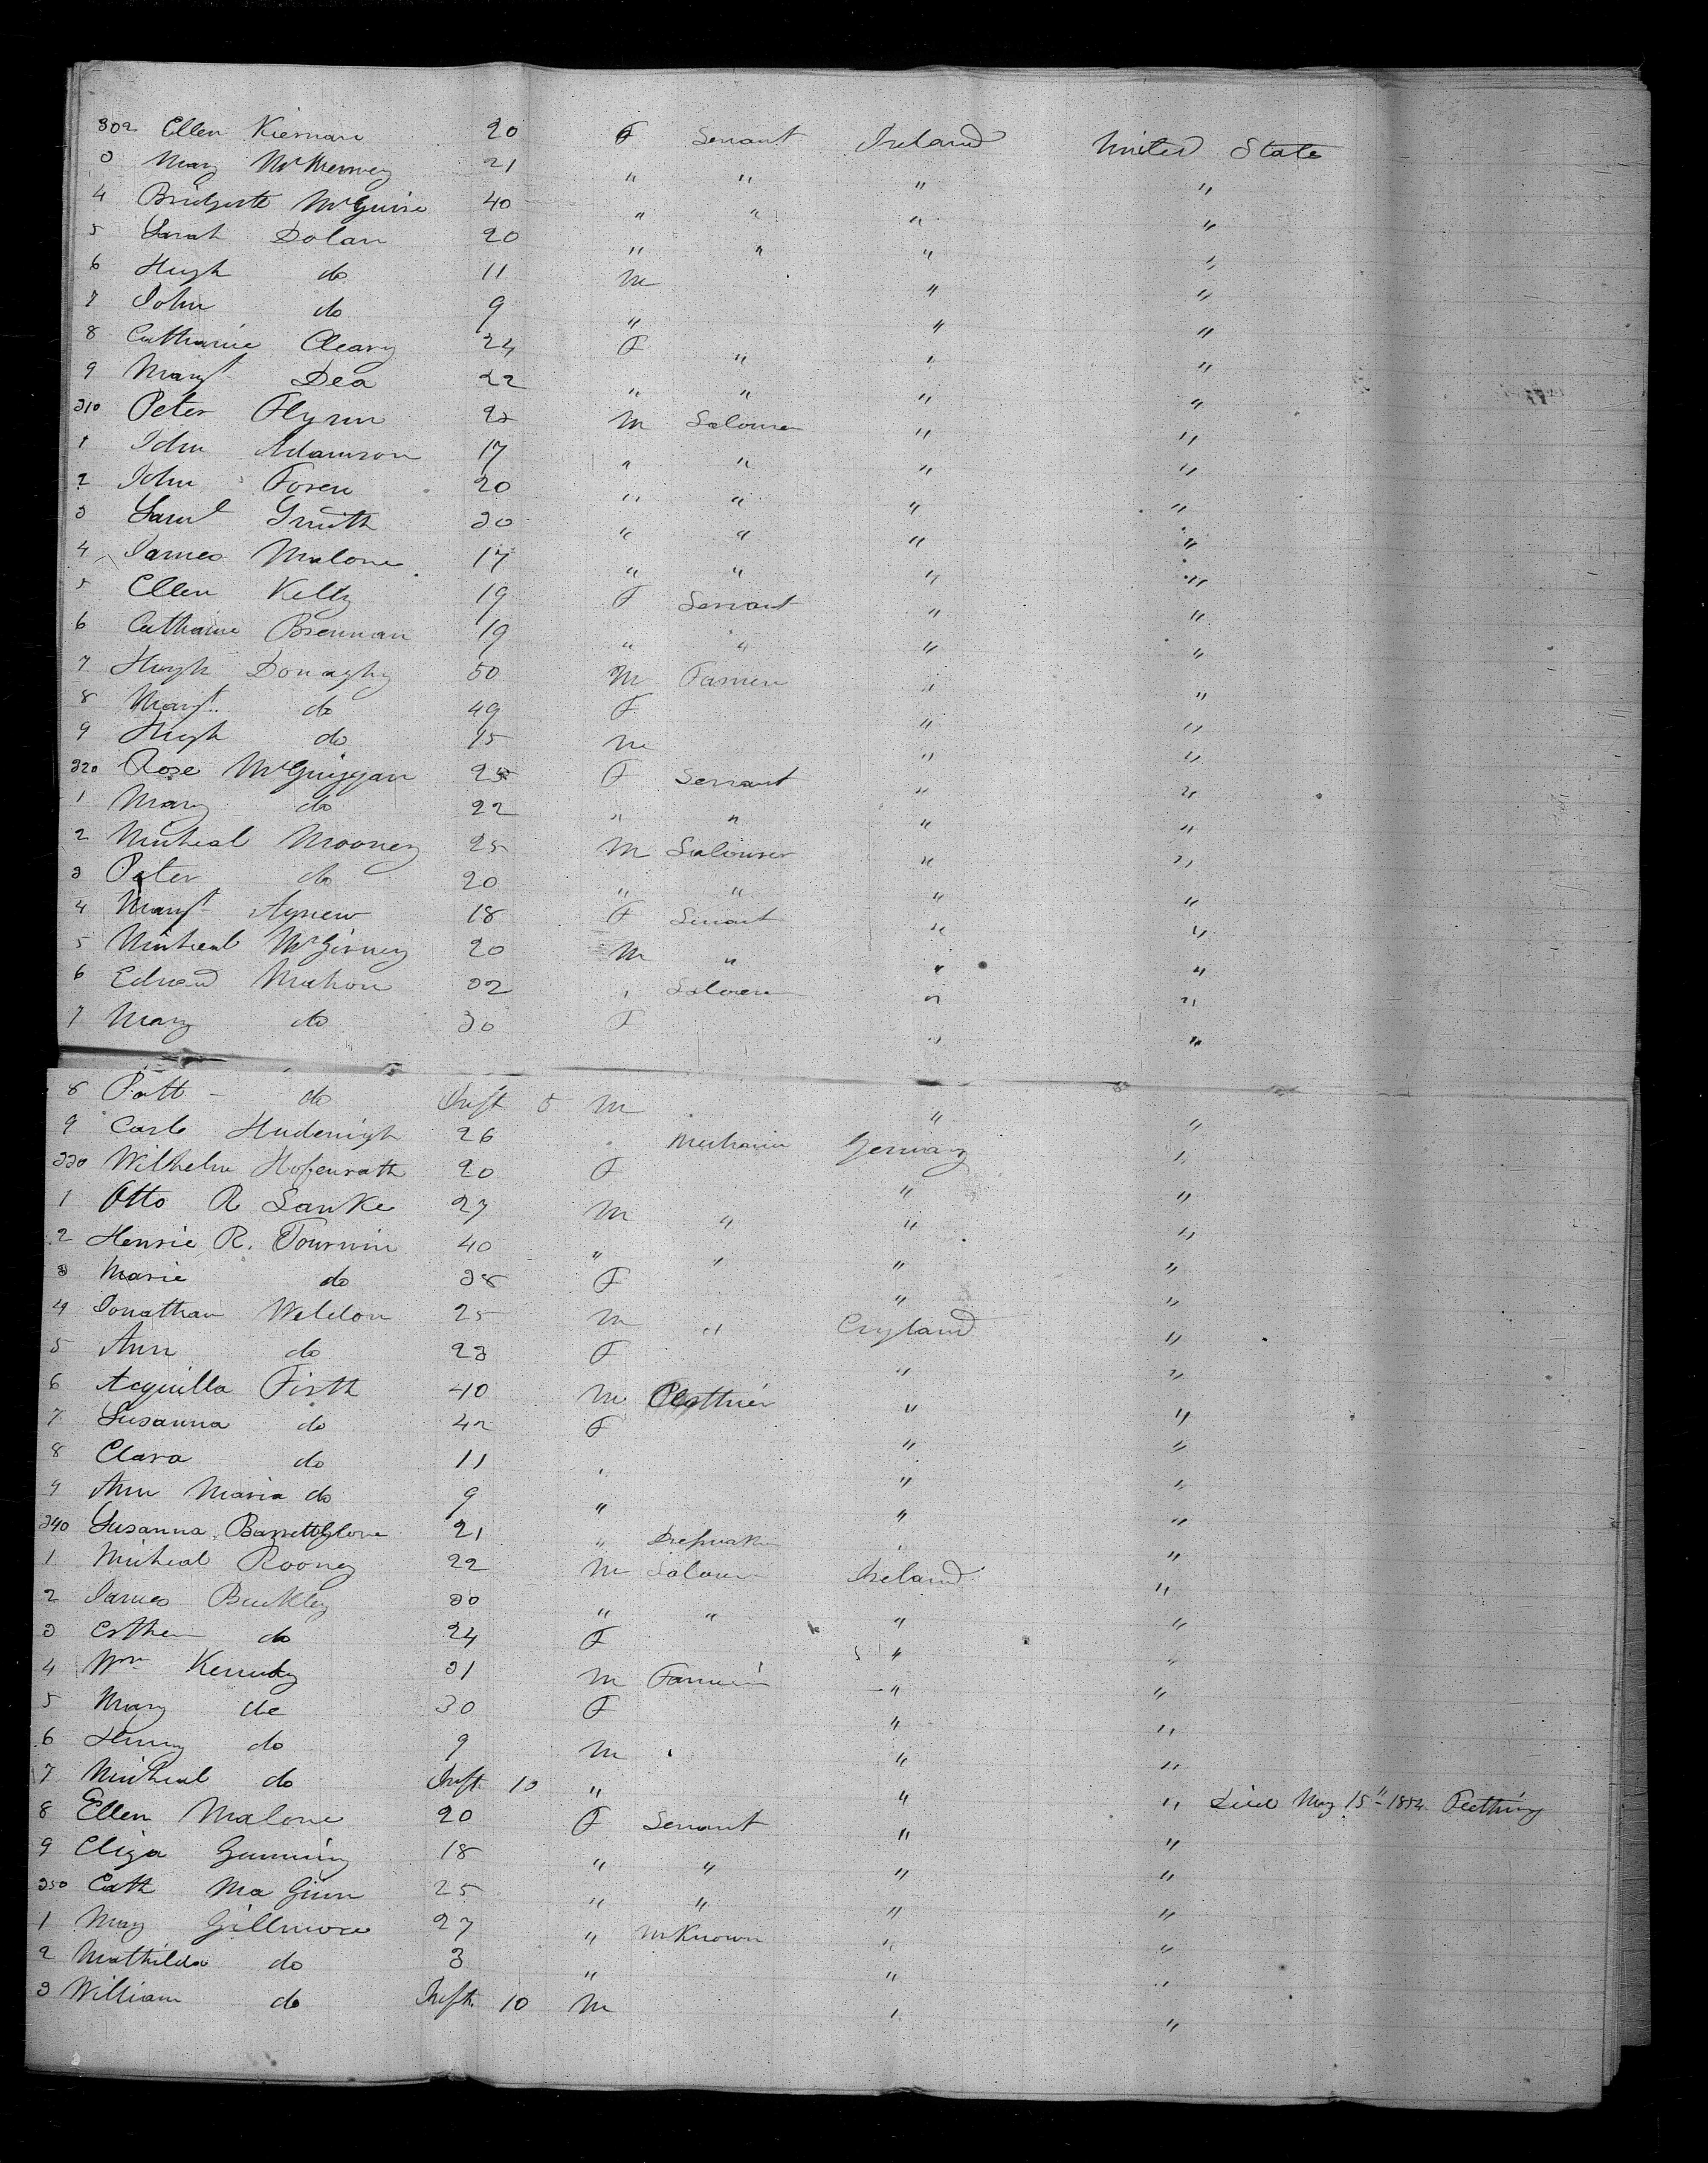 302 Ellen Kiernan 20 F Servant Ireland United State
3 Mary 21 " " " "
4 Bridgett McGuire 40 " " " "
5 Sarah Dolan 20 " " " "
6 Hugh do 11 M " "
7 John do 9 " " "
8 Catharine Cleary 24 F " " "
9 Margt Dea 22 " " " "
310 Peter Flynn M Labourer " "
1 John Adamson 17 " " " "
2 John Foren 20 " " " "
3 Saml Smith 30 " " " "
4 James Malone 17 " " " "
5 Ellen Kelly 19 F Servant " "
6 Catharine Brennan 19 " " " "
7 Hugh Donaghy 50 M Farmer " "
8 Margt do 49 F " "
9 Hugh do 15 M " "
320 Rose McGuiggan 25 F Servant " "
1 Mary do 22 " " " "
2 Micheal Mooney 25 M Labourer " "
3 Peter do 20 " " " "
4 Margt Agnew 18 F Servant " "
5 Micheal McGirney 20 M " " "
6 Edward Mahon 32 " Labourer " "
7 Mary do 30 F " "
8 Patt do Inft 5 M " "
9 Carl 26 " Mechanic Germany "
330 Wilhelm Hofenrath 20 F " "
1 Otto R Lanke 27 M " " "
2 Henrie R. Tournin 40 " " " "
3 Marie do 38 F " "
4 Jonathan Weldon 25 M " England "
5 Ann do 23 F " "
6 Acquilla Firth 40 M Clothier " "
7 Susanna do 42 F " "
8 Clara do 11 " " "
9 Ann Maria do 9 " " "
340 Susanna 21 " " "
1 Micheal Rooney 22 M Labourer Ireland "
2 James Buckley 30 " " " "
3 Esther do 24 F " "
4 Wm Kennedy 31 M Farmer " "
5 Mary do 30 F " "
6 Henry do 9 M " "
7 Micheal do Inft 10 " " " Died May 15" 1854 Teething
8 Ellen Malone 20 F Servant " "
9 Eliza Gunning 18 " " " "
350 Cath Ma Ginn 25 " " " "
1 May Gillmore 27 " unknown " "
2 Mathilda do 3 " " "
3 William do Inft. 10 M " "